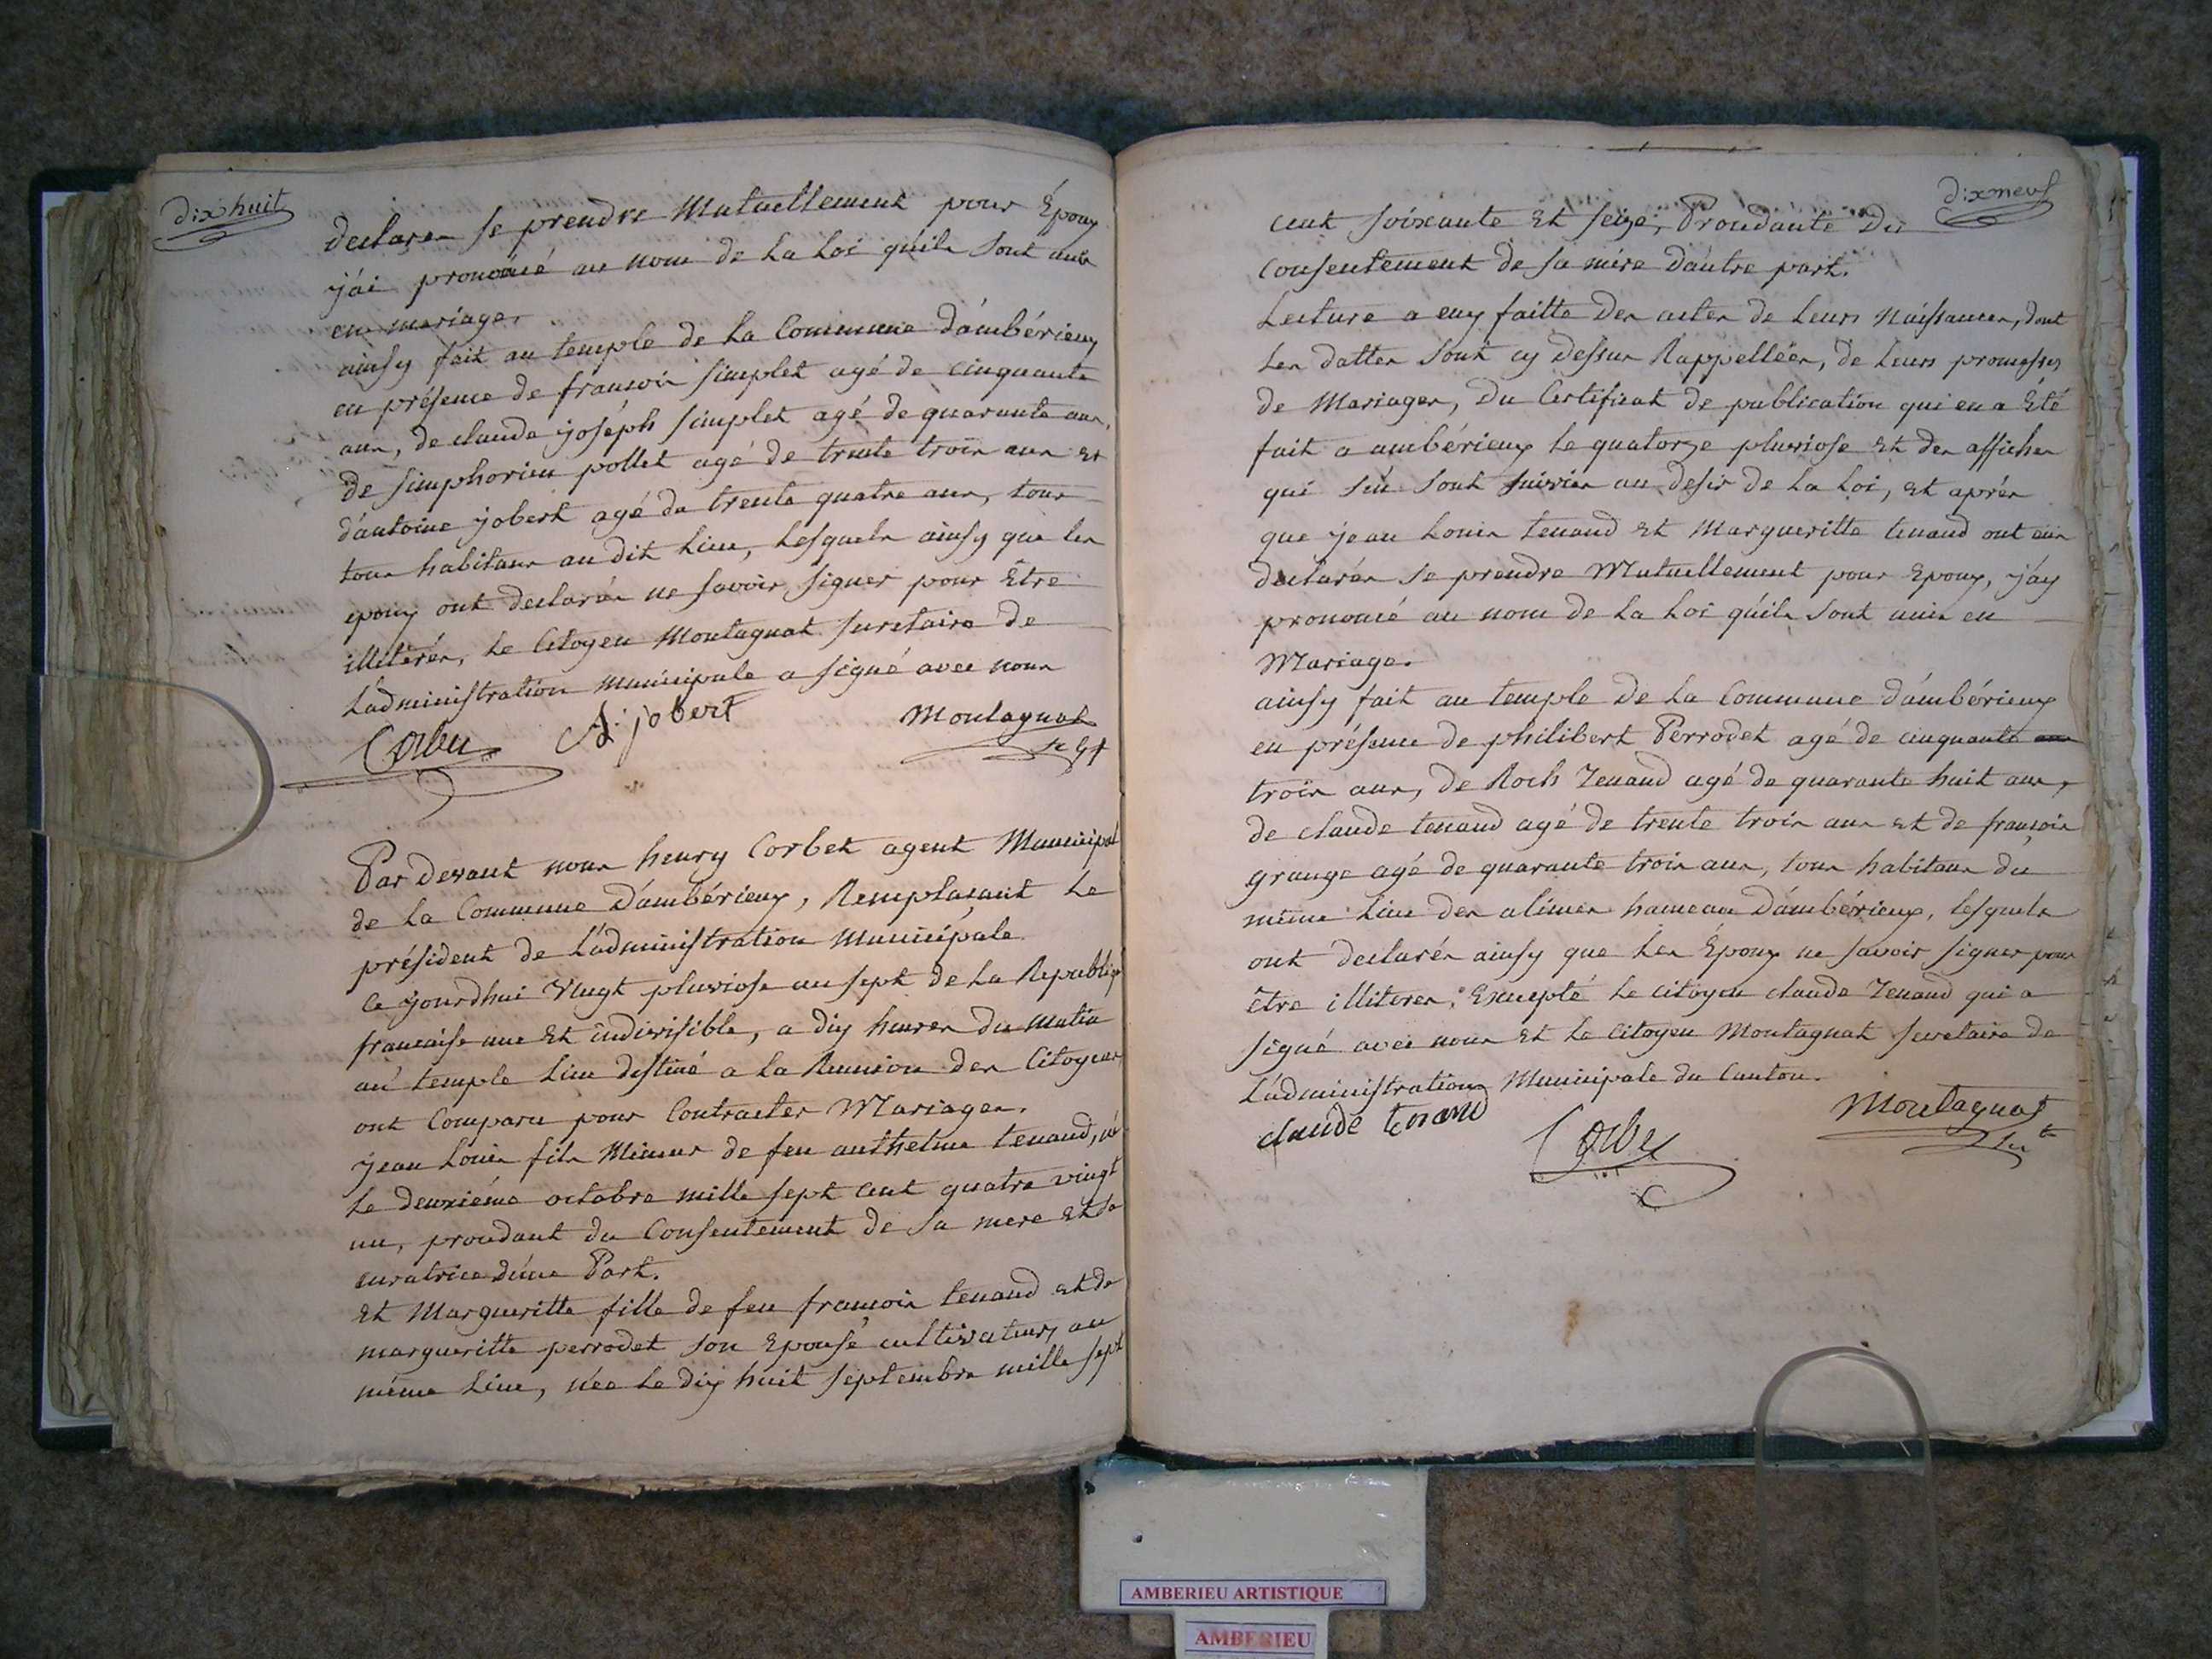 dix huit
declarer se prendre Mutuellement pour Époux
j'ái prononcé au nom de La Loi qu'ils sont unis
en mariage.
ainsy fait au temple de La Commune d'ambérieux
en présence de françois simplet agé de cinquante
ans, de claude joséph simplet agé de quarante ans,
de simphorien pollet agé de trente trois ans Et
d'antoine jobert agé de trente quatre ans, tous
tous habitans au dit Lieu, Lesquels ainsy que les
epoux ont declarés ne savoir signer pour Être
illitérés, Le Citoyen Montagnat secretaire de
L'administration municipale a signé avec nous
Corbet A: jobert Montagnat
Par Devant nous henry Corbet agent Municipal
de La Commune D'ambérieux, Remplaçant Le
président de L'administration Municipale.
Ce jourdhui Vingt pluviose an sept de La Republiq
francaise une Et indivisible, a dix heures du matin
au temple Lieu destiné a La Reunion des Citoyens
ont Comparu pour Contracter Mariages.
jean Louis fils Mineur de feu anthelme tenand, né
Le deuxiéme octobre mille sept cent quatre vingt
un, procédant du Consentement de sa mere Et sa
curatrice d'une Part.
Et Margueritte fille de feu françois tenand Et de
margueritte perrodet son Epouse cultivateurs au
même Lieu, née Le dix huit septembre mille sept
dix neuf
cent soixante Et seize, Procédante Du
Consentement de sa mère D'autre part.
Lecture a eux faitte Des actes de Leurs Naissances, dont
Les dattes sont cy Dessus Rappellées, de Leurs promesses
de Mariages, Du Certificat de publication qui en a Été
fait a ambérieux Le quatorze pluviose Et des affiches
qui s'en sont suivies au desir de La Loi, Et aprés
que jean Louis tenand Et Margueritte tenand ont eus
declarés se prendre Mutuellement pour Epoux, j'ay
prononcé au nom de La Loi qu'ils sont unis en
Mariage.
ainsy fait au temple De La Commune d'ambérieux
en présence de philibert Perrodet agé de cinquante
trois ans, de Roch Tenand agé de quarante huit ans,
de claude tenand agé de trente trois ans Et de françois
grange agé de quarante trois ans, tous habitans du
même Lieu des alimes hameau D'ambérieux, Lesquels
ont declarés ainsy que Les Époux ne savoir signer pour
être illiteres, Excepté Le citoyen claude Tenand qui a
signé avec nous Et Le Citoyen Montagnat Secretaire de
L'administration Municipale du Canton.
claude tenand Corbet Montagnat
AMBERIEU ARTISTIQUE
AMBERIEU